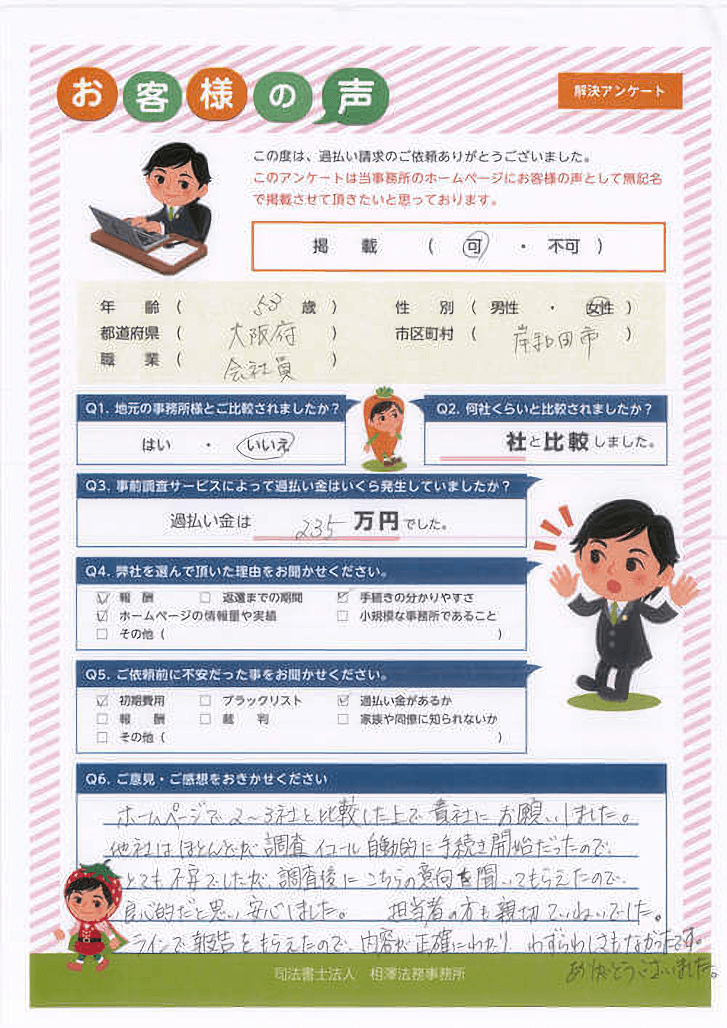 お客様の声
解決アンケート
この度は、過払い請求のご依頼ありがとうございました。
このアンケートは当事務所のホームページにお客様の声として無記名
で掲載させて頂きたいと思っております。
掲 載 ( 可 ・ 不可 )
年 齢 ( 53 歳 ) 性 別 ( 男性 ・ 女性 )
都道府県 ( 大阪府 ) 市区町村 ( 岸和田市 )
職 業 ( 会社員 )
Q1. 地元の事務所様とご比較されましたか? Q2. 何社くらいと比較されましたか?
はい ・ いいえ 社と比較しました。
Q3. 事前調査サービスによって過払い金はいくら発生していましたか?
過払い金は 235 万円でした。
Q4. 弊社を選んで頂いた理由をお聞かせください。
☑ 報 酬 □ 返還までの期間 ☑ 手続きの分かりやすさ
☑ ホームページの情報量や実績 □ 小規模な事務所であること
□ その他 ( )
Q5. ご依頼前に不安だった事をお聞かせください。
☑ 初期費用 □ ブラックリスト ☑ 過払い金があるか
□ 報 酬 □ 裁 判 □ 家族や同僚に知られないか
□ その他 ( )
Q6. ご意見・ご感想をおきかせください
ホームページで2〜3社と比較した上で貴社にお願いしました。
他社はほとんどが調査イコール自動的に手続き開始だったので、
とても不安でしたが、調査後にこちらの意向を聞いてもらえたので、
良心的だと思い安心しました。 担当者の方も親切ていねいでした。
ラインで報告をもらえたので、内容が正確にわかり わずらわしさもなかったです。
ありがとうございました。
司法書士法人 相澤法務事務所